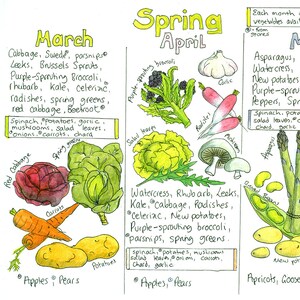 Spring
March
Cabbage, Swede, parsnips,
Leeks, Brussels Sprouts,
Purple-Sprouting Broccoli,
rhubarb, Kale, celeriac,
radishes, spring greens,
red cabbage, Beetroot
Spinach, potatoes, garlic,
mushrooms, salad leaves,
onions, carrots, chard
Red Cabbage
Spring greens
Carrots
Potatoes
Apples, Pears
April
Purple-sprouting broccoli
Garlic
Radishes
Salad leaves
Watercress, Rhubarb, Leeks,
Kale, Cabbage, Radishes,
Celeriac, New potatoes,
Purple-sprouting broccoli,
parsnips, spring greens.
Spinach, potatoes, mushrooms
salad leaves, onion, carrots,
chard, garlic
Apples, Pears
Each month
vegetables avail
= from
stores
Asparagus,
Watercress,
New potatoes,
Purple-sprout
Peppers, Spr
Spinach, pota
salad leaves,
chard, garlic
Asparagus
Broad Beans
New pota
Apricots, Goose